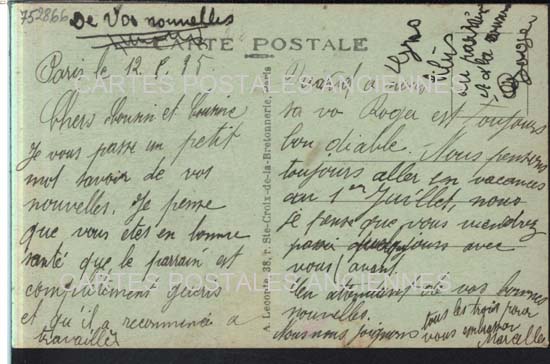 752866
De Vos nouvelles
CARTE POSTALE
CARTES POSTALES ANCIENNES
Paris le 12
Chers Cousin et Cousine
Je vous passe un petit
mot savoir de vos
nouvelles. Je pense
que vous etes en bonne
santé que le parrain est
complètement guéris
et qu'il a recommencé a
travailler
A. Leconte, 38, r. Ste-Croix-de-la-Bretonnerie, Paris
Quand a nous
sa va Roger est toujours
bon diable. Nous pensons
toujours aller en vacances
au 1er Juillet, nous
je pense que vous viendrez
jours avec
vous avant
En attendant de vos bonnes
nouvelles.
tous les trois pour
vous embrasser
Marcelle
Gros
au parrain
et a la
Roger
CARTES POSTALES ANCIENNES